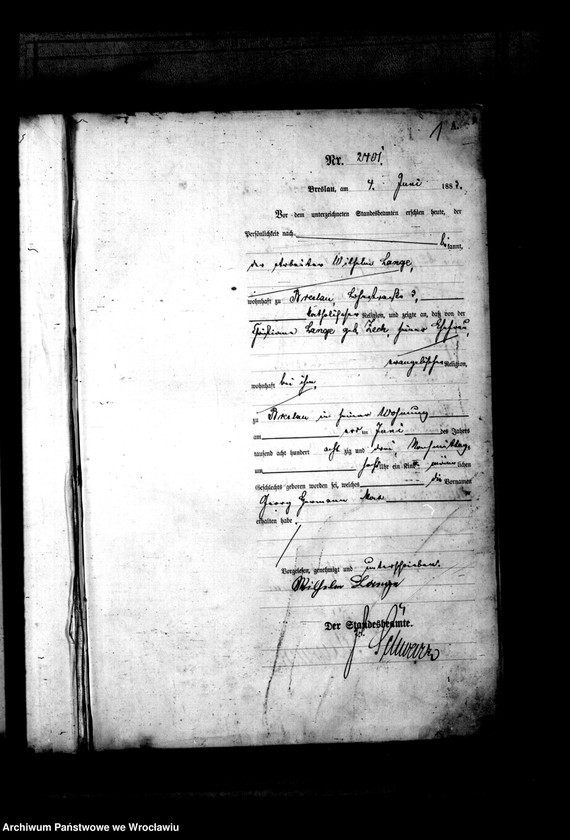 1
Nr. 2401.
Breslau, am 4. Juni 1883.
Vor dem unterzeichneten Standesbeamten erschien heute, der
Persönlichkeit nach
bekannt,
der Arbeiter Wilhelm Lange,
wohnhaft zu Breslau,
katholischer Religion, und zeigte an, daß von der
Lange geb. seiner Ehefrau,
evangelischer Religion,
wohnhaft bei ihm,
zu Breslau in seiner Wohnung
am Juni des Jahrs
tausend acht hundert acht zig und drei, Nachmittags
um Uhr ein Kind männlichen
Geschlechts geboren worden sei, welches die Vornamen
Georg Hermann Max
erhalten habe.
Vorgelesen, genehmigt und unterschrieben.
Wilhelm Lange
Der Standesbeamte.
Schwarz
Archiwum Państwowe we Wrocławiu